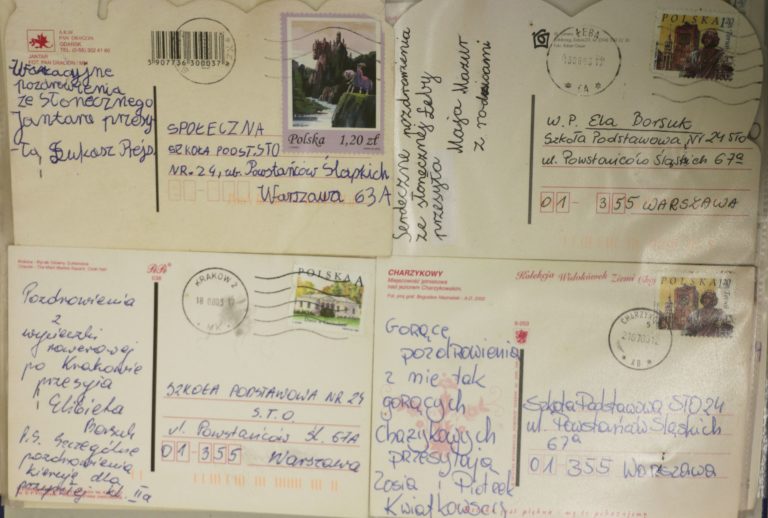 A.K.W.
PAN DRAGON
GDAŃSK
JANTAR
5907736300037
Wakacyjne
pozdrowienia
ze słonecznego
Jantaru przesy-
-ła, Łukasz
Polska 1,20 zł
SPOŁECZNA
SZKOŁA PODST. STO
NR. 24, ul. Powstańców Śląskich
Warszawa 63A
Serdeczne pozdrowienia
ze słonecznej Łeby
przesyła
Maja Mazur
z rodzicami
ŁEBA
POLSKA 1,20
W. P. Ela Borsuk
Szkoła Podstawowa Nr 24 STO
ul. Powstańców Śląskich 67a
01-355 WARSZAWA
KRAKÓW 2
POLSKA A
Pozdrowienia
z
wycieczki
rowerowej
po Krakowie
przesyła
Elżbieta
Borsuk
P.S. Szczególne
pozdrowienia
kieruję dla
przyszłej kl. IIa
SZKOŁA PODSTAWOWA NR 24
S.T.O
ul. Powstańców Śl. 67A
01-355 Warszawa
CHARZYKOWY
Miejscowość górnikowa
nad jeziorem Charzykowskim.
Kolekcja Widokówek Ziemi
CHARZYKOWY
POLSKA
Gorące
pozdrowienia
z nie tak
gorących
Chażykowych
przesyłają
Zosia i Piotrek
Kwiatkowscy
Szkoła Podstawowa STO 24
ul. Powstańców Śląskich
67a
01-355 Warszawa